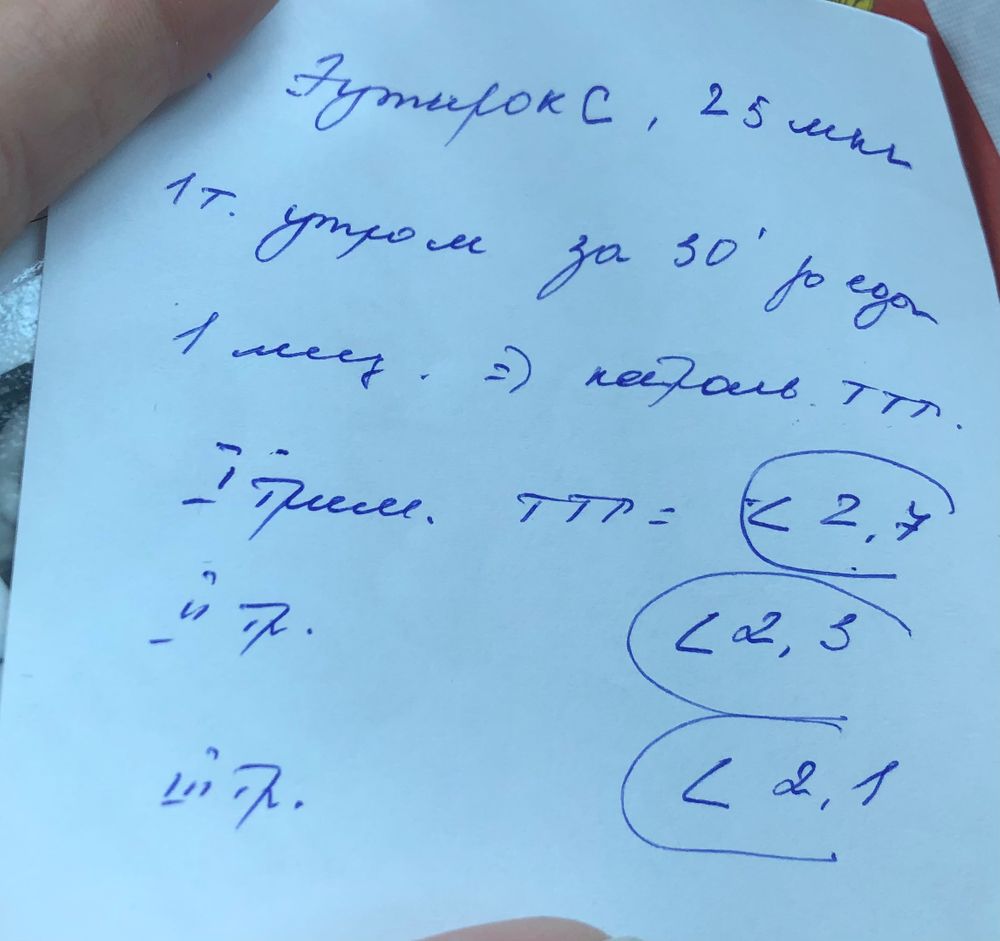 Эутирокс, 25 мкг
1т. утром за 30' до еды
1 месяц. => контроль ТТГ.
I трим. ТТГ = < 2,7
II тр. < 2,3
III тр. < 2,1